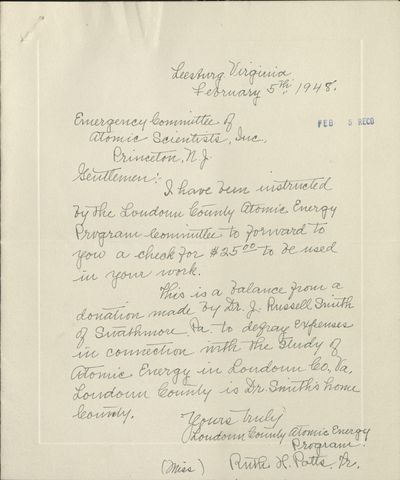 Leesburg Virginia
February 5th, 1948.
Emergency Committee of
FEB 5 RECD
Atomic Scientists, Inc.,
Princeton, N.J.
Gentlemen:
I have been instructed
by the Loudoun County Atomic Energy
Program Committee to forward to
you a check for $25.00 to be used
in your work.
This is a balance from a
donation made by Dr. J. Russell Smith
of Swathmore Pa. to defray expenses
in connection with the study of
Atomic Energy in Loudoun Co. Va.
Loudoun County is Dr. Smith's home
County.
Yours truly
Loudoun County Atomic Energy
Program.
(Miss) Ruth H. Potts,